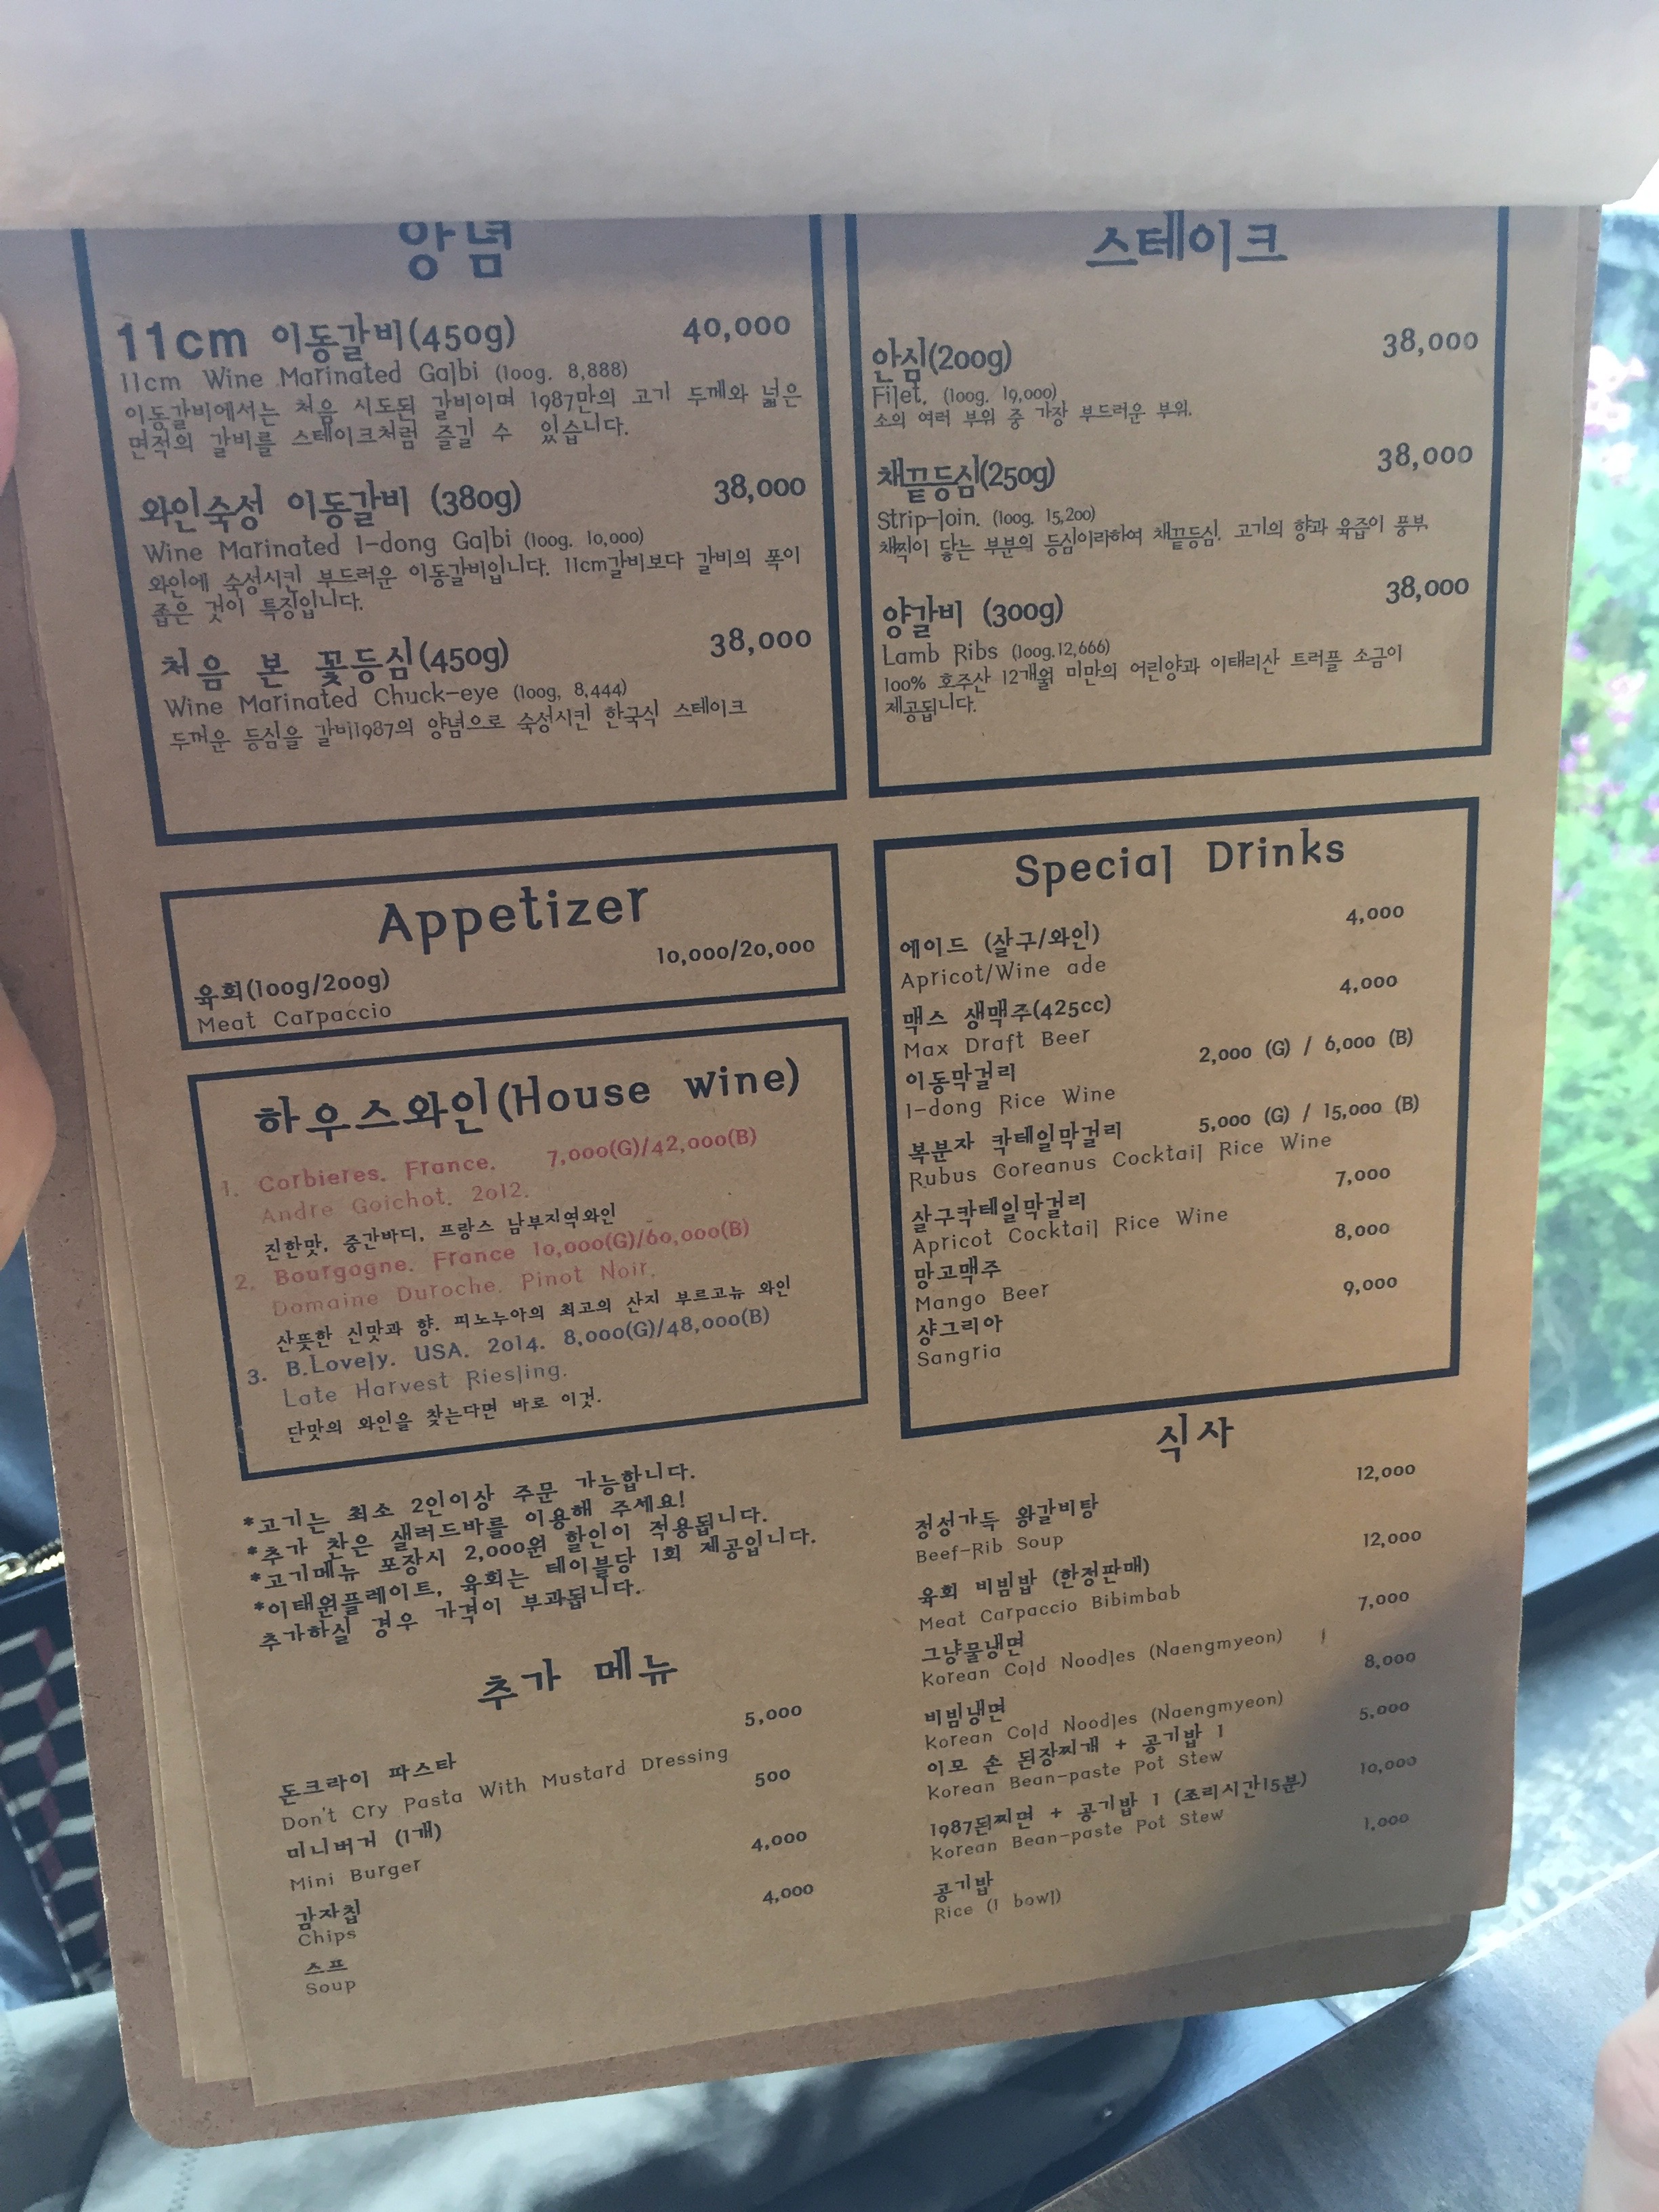 양념
11cm 이동갈비(450g) 40,000
11cm Wine Marinated Galbi (100g. 8,888)
이동갈비에서는 처음 시도된 갈비이며 1987만의 고기 두께와 넓은
면적의 갈비를 스테이크처럼 즐길 수 있습니다.
와인숙성 이동갈비 (380g) 38,000
Wine Marinated I-dong Galbi (100g. 10,000)
와인에 숙성시킨 부드러운 이동갈비입니다. 11cm갈비보다 갈비의 폭이
좁은 것이 특징입니다.
처음 본 꽃등심(450g) 38,000
Wine Marinated Chuck-eye (100g, 8,444)
두꺼운 등심을 갈비1987의 양념으로 숙성시킨 한국식 스테이크
스테이크
안심(200g) 38,000
Filet. (100g. 19,000)
소의 여러 부위 중 가장 부드러운 부위.
채끝등심(250g) 38,000
Strip-loin. (100g. 15,200)
채찍이 닿는 부분의 등심이라하여 채끝등심. 고기의 향과 육즙이 풍부.
양갈비 (300g) 38,000
Lamb Ribs (100g.12,666)
100% 호주산 12개월 미만의 어린양과 이태리산 트러플 소금이
제공됩니다.
Appetizer
육회(100g/200g) 10,000/20,000
Meat Carpaccio
하우스와인(House wine)
1. Corbieres. France. 7,000(G)/42,000(B)
Andre Goichot. 2012.
진한맛, 중간바디, 프랑스 남부지역와인
2. Bourgogne. France 10,000(G)/60,000(B)
Domaine Duroche. Pinot Noir.
산뜻한 신맛과 향. 피노누아의 최고의 산지 부르고뉴 와인
3. B.Lovely. USA. 2014. 8,000(G)/48,000(B)
Late Harvest Riesling.
단맛의 와인을 찾는다면 바로 이것.
Special Drinks
에이드 (살구/와인) 4,000
Apricot/Wine ade
맥스 생맥주(425cc) 4,000
Max Draft Beer
이동막걸리 2,000 (G) / 6,000 (B)
I-dong Rice Wine
복분자 칵테일막걸리 5,000 (G) / 15,000 (B)
Rubus Coreanus Cocktail Rice Wine
살구칵테일막걸리 7,000
Apricot Cocktail Rice Wine
망고맥주 8,000
Mango Beer
샹그리아 9,000
Sangria
*고기는 최소 2인이상 주문 가능합니다.
*추가 찬은 샐러드바를 이용해 주세요!
*고기메뉴 포장시 2,000원 할인이 적용됩니다.
*이태원플레이트, 육회는 테이블당 1회 제공입니다.
추가하실 경우 가격이 부과됩니다.
추가 메뉴
돈크라이 파스타 5,000
Don't Cry Pasta With Mustard Dressing
미니버거 (1개) 500
Mini Burger
감자칩 4,000
Chips
스프 4,000
Soup
식사
정성가득 왕갈비탕 12,000
Beef-Rib Soup
육회 비빔밥 (한정판매) 12,000
Meat Carpaccio Bibimbab
그냥물냉면 7,000
Korean Cold Noodles (Naengmyeon)
비빔냉면 8,000
Korean Cold Noodles (Naengmyeon)
이모 손 된장찌개 + 공기밥 1 5,000
Korean Bean-paste Pot Stew
1987된찌면 + 공기밥 1 (조리시간15분) 10,000
Korean Bean-paste Pot Stew
공기밥 1,000
Rice (1 bowl)